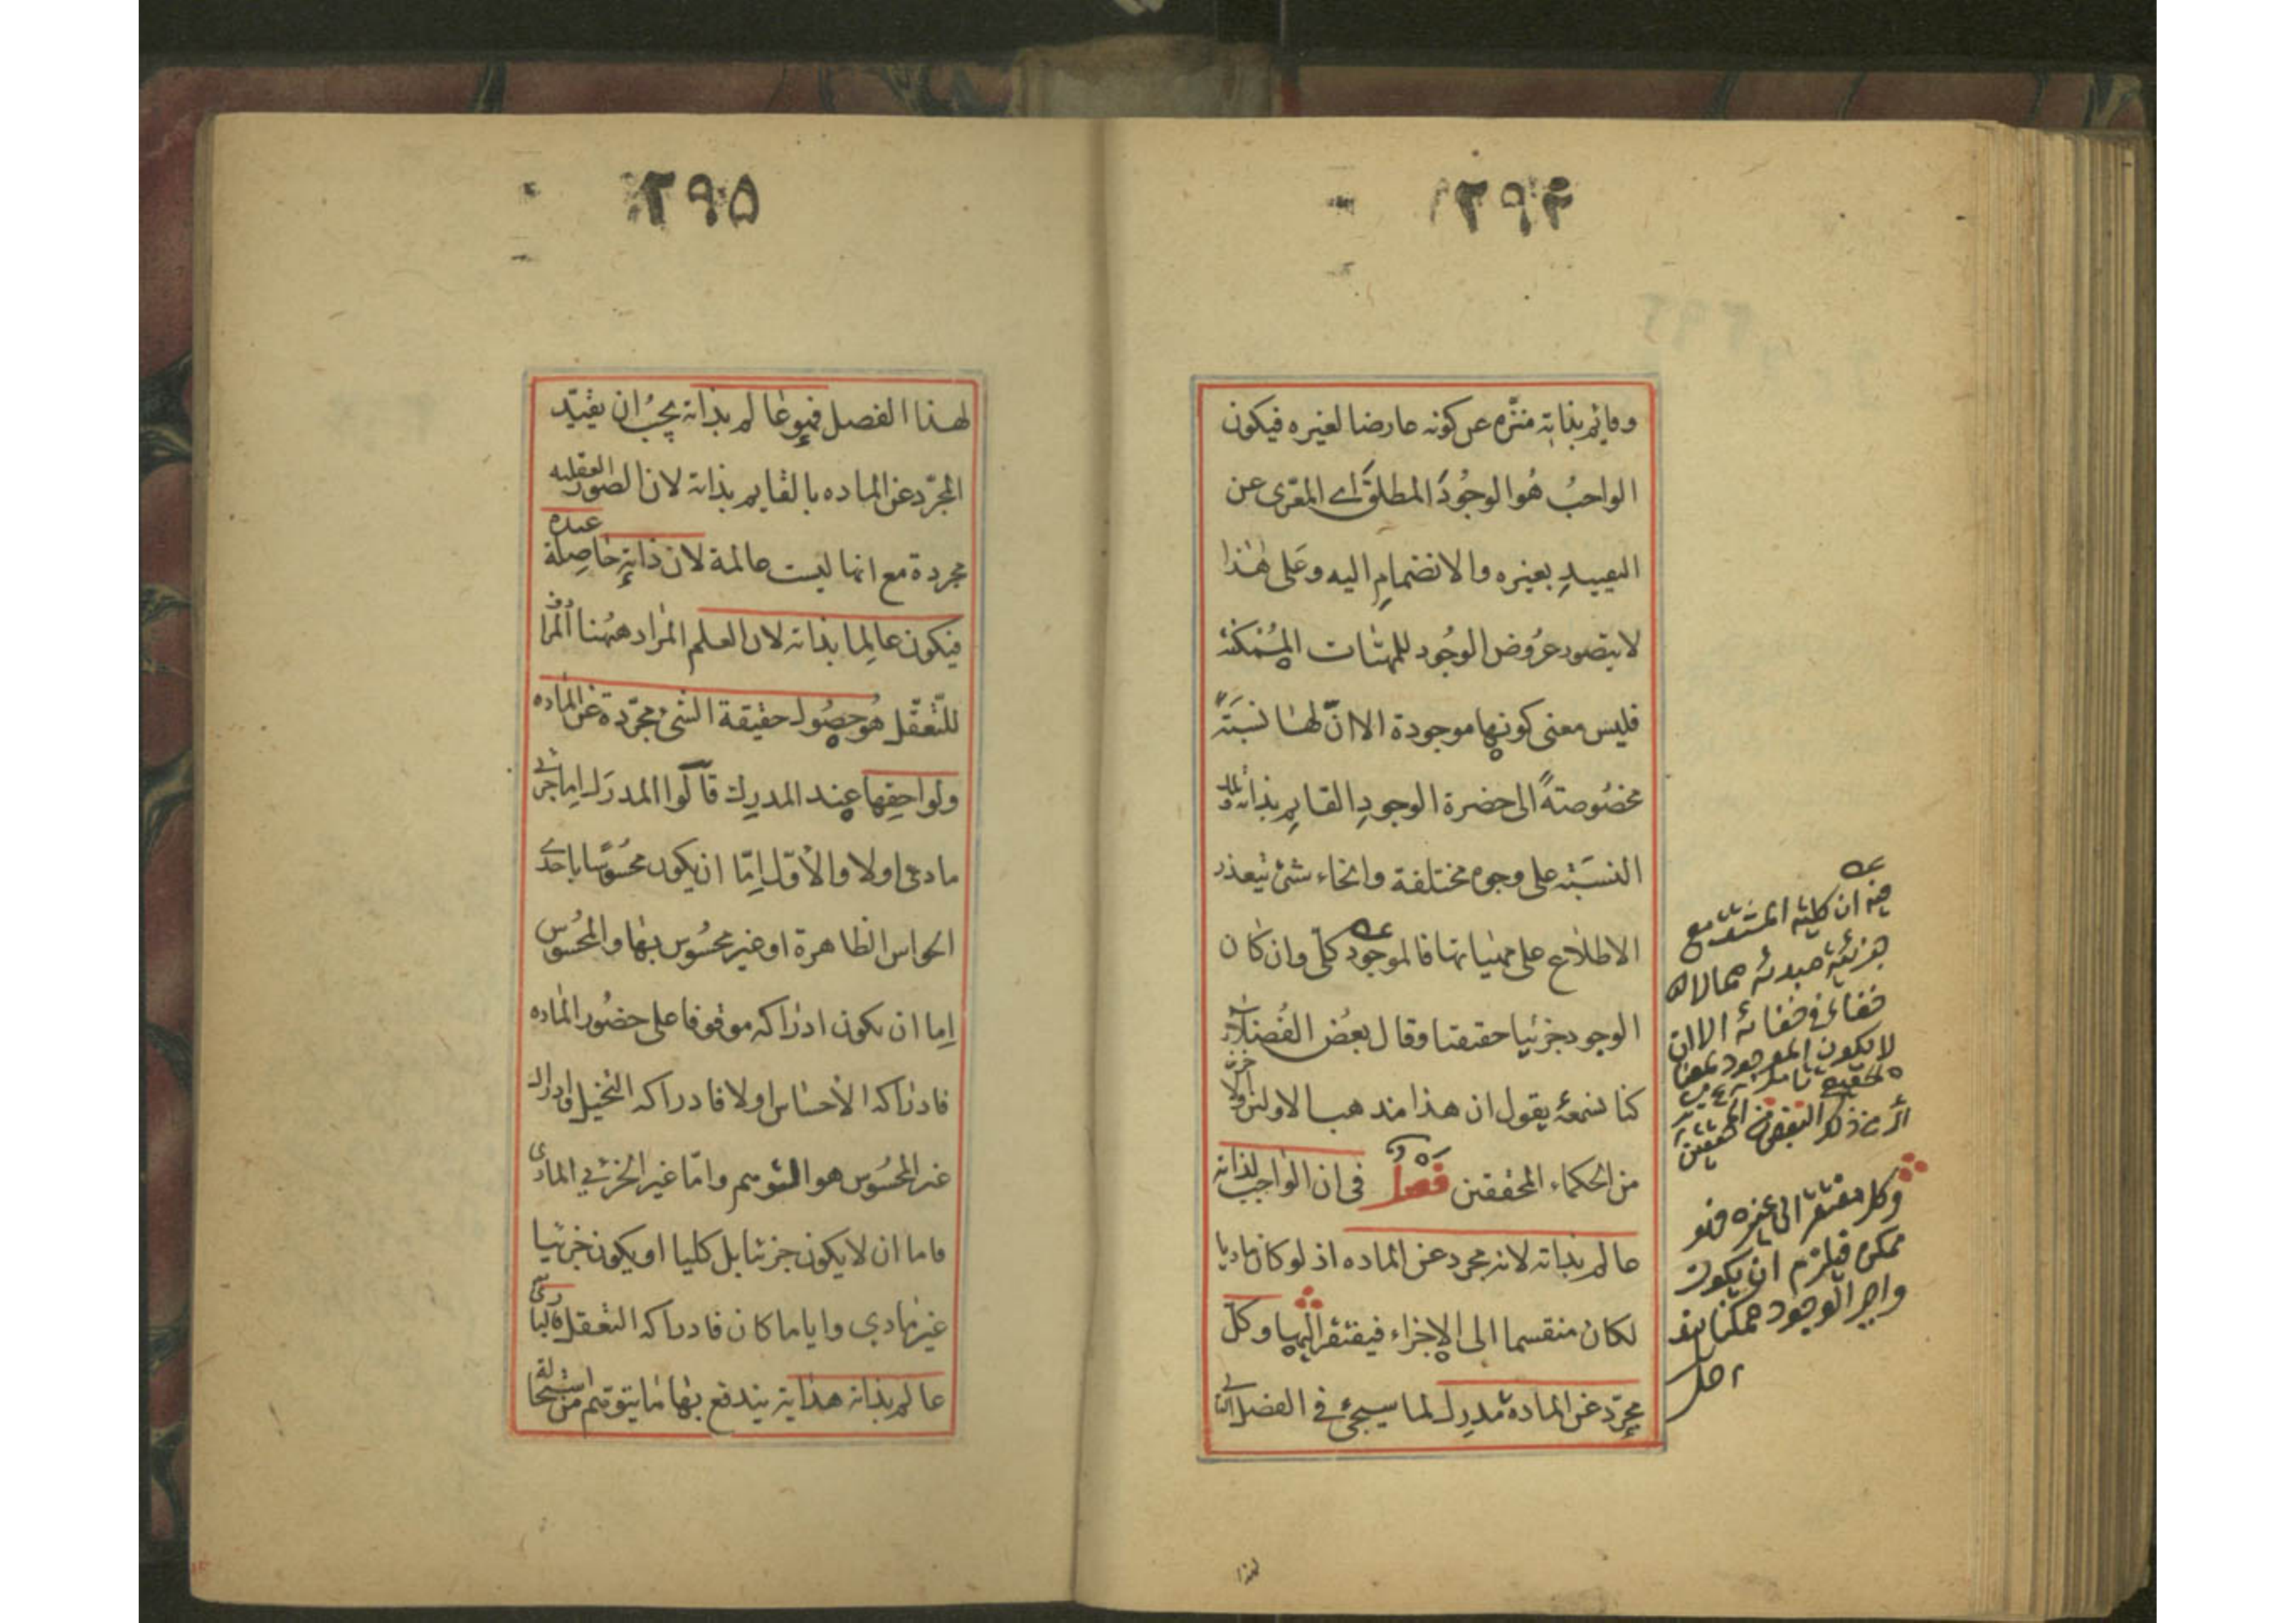 ٢٩٤
وقايم بذاته منزه عن كونه عارضا لغيره فيكون
الواجبُ هُوا لوجُودَ المطلقَ اے المعرّى عن
التقييدِ بغيره والانضمامِ اليه وعَلى هٰذا
لا يتصور عرُوض الوجُود للمهيّات المُمكنة
فليس معنى كونها موجودة الا انّ لها نسبَتةً
مخصُوصتةً الى حضرة الوجودِ القايمِ بذاته وتلك
النسبَتة على وجوه مختلفة وانحاء شتى يتعذر
الاطلاع على مهيّاتها فالموجود كلّى وان كان
الوجود جزئيا حقيقيا وقال بعضُ الفُضلاء
كنا نسمعهُ يقول ان هذا مذهب الاولين
من الحكماء المحققين فصل فى ان الواجب لذاته
عالم بذاته لانه مجرد عن الماده اذ لو كان ماديا
لكان منقسما الى الاجزاء فيفتقر اليها وكلّ
مجرّد عن الماده مُدرِك لما سيجئ فے الفصل التالے
وكل مفتقر الى غيره فهو
ممكن فيلزم ان يكون
واجب الوجود ممكنا هف
١٢ حل
لهذا
٢٩٥
لهذا الفصل فهو عالم بذاته يجبُ ان يقيّد
المجرّد عن الماده بالقايم بذاته لان الصور العقليه
مجردة مع انها ليست عالمة لان ذاته حاصِلة عنده
فيكون عالِما بذاته لان العلم المراد ههُنا المرادف
للتّعقّل هُو حصُول حقيقة الشئ مجرّدة عن الماده
ولواحِقها عِند المدرِك قالُوا المدرَك اِما جزئى
مادى اولا والأوّل اِمّا ان يكون محسُوسًا باحدے
الحواس الظاهرة او غير محسُوس بها والمحسُوس
اِما ان يكون ادراكه موقوفا على حضُور الماده
فادراكه الأحساس اولا فادراكه التخيل وادراك
غير المحسُوس هو التوهم وامّا غير الجزئے المادى
فاما ان لا يكون جزئيا بل كليا او يكون جزئيا
غير مادي وايا ما كان فادراكه التعقل فالبارى
عالم بذاته هداية يندفع بها ما يتوهم من استحالة